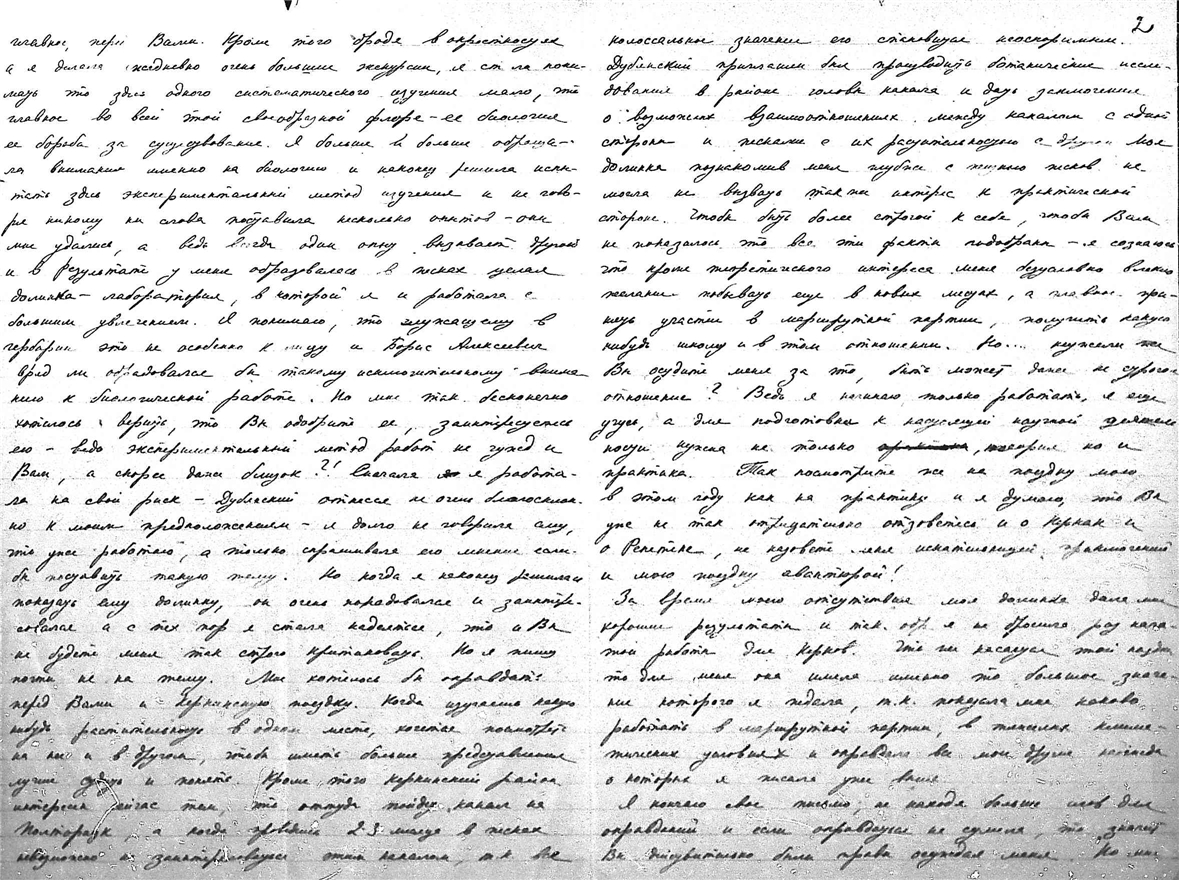 главное, перед Вами. Кроме того бродя в окрестностях
а я делала ежедневно очень большие экскурсии, я стала пони-
мать что здесь одного систематического изучения мало, что
главное во всей этой своеобразной флоре – ее биология
ее борьба за существование. Я больше и больше обраща-
ла внимания именно на биологию и наконец решила испы-
тать здесь экспериментальный метод изучения и не гово-
ря никому ни слова поставила несколько опытов – они
мне удались, а ведь всегда один опыт вызывает другой
и в результате у меня образовалась в песках целая
долинка – лаборатория, в которой я и работала с
большим увлечением. Я понимаю, что служащему в
гербарии это не особенно к лицу и Борис Алексеевич
вряд ли обрадовался бы такому исключительному внима
нию к биологической работе. Но мне так бесконечно
хотелось верить, что Вы одобрите ее, заинтересуетесь
ею – ведь экспериментальный метод работ не чужд и
Вам, а скорее даже близок?! Сначала я работа-
ла на свой риск – Дубянский отнесся не очень благосклон-
но к моим предположениям – я долго не говорила ему,
что уже работаю, а только спрашивала его мнение если-
бы поставить такую тему. Но когда я наконец решилась
показать ему долинку, он очень порадовался и заинтере-
совался а с тех пор я стала надеяться, что и Вы
не будете меня так строго критиковать. Но я пишу
почти не на тему. Мне хотелось бы оправдать
перед Вами и Керкинскую поездку. Когда изучаешь какую
нибудь растительность в одном месте, хочется посмотреть
на нее и в другом, чтобы иметь больше представления
лучше судить и понять. Кроме того керкинский район
интересен сейчас тем что оттуда пойдет канал на
Полторацк а когда проведешь 2-3 месяца в песках
невозможно не заинтересоваться этим каналом, т.к. все
2
колоссальное значение его становится неоспоримым.
Дубянский приглашен был производить ботанические иссле-
дования в районе головы канала и дать заключение
о возможных взаимоотношениях между каналом с одной
стороны и песками с их растительностью с другой. Моя
долинка познакомив меня глубже с жизнью песков не
могла не вызвать также интерес к практической
стороне. Чтобы быть более строгой к себе, чтобы Вам
не показалось что все эти факты подобраны – я сознаюсь
что кроме теоретического интереса меня безусловно влекло
желание побывать еще в новых местах, а главное при-
нять участие в маршрутной партии, получить какую
нибудь школу и в этом отношении. Но... неужели же
Вы осудите меня за то, быть может даже не строгое
отношение? Ведь я начинаю только работать, я еще
учусь, а для подготовки к настоящей научной деятель
ности нужна не только теория но и
практика. Так посмотрите же на поездку мою
в этом году как на практику и я думаю, что Вы
уже не так отрицательно отзоветесь и о Керках и
о Репетеке, не назовете меня искательницей приключений
и мою поездку авантюрой!
За время моего отсутствия моя долинка дала мне
хорошие результаты и так. обр. я не бросила раз нача-
той работы для Керков. Что же касается этой поездки
то для меня она имела именно то большое значе-
ние которого я ждала, т.к. показала мне каково
работать в маршрутной партии, в тяжелых клима-
тических условиях и оправдала все мои другие надежды
о которых я писала уже выше
Я кончаю свое письмо не находя больше слов для
оправданий и если оправдаться не сумела, то значит
Вы действительно были правы осуждая меня. Но мне